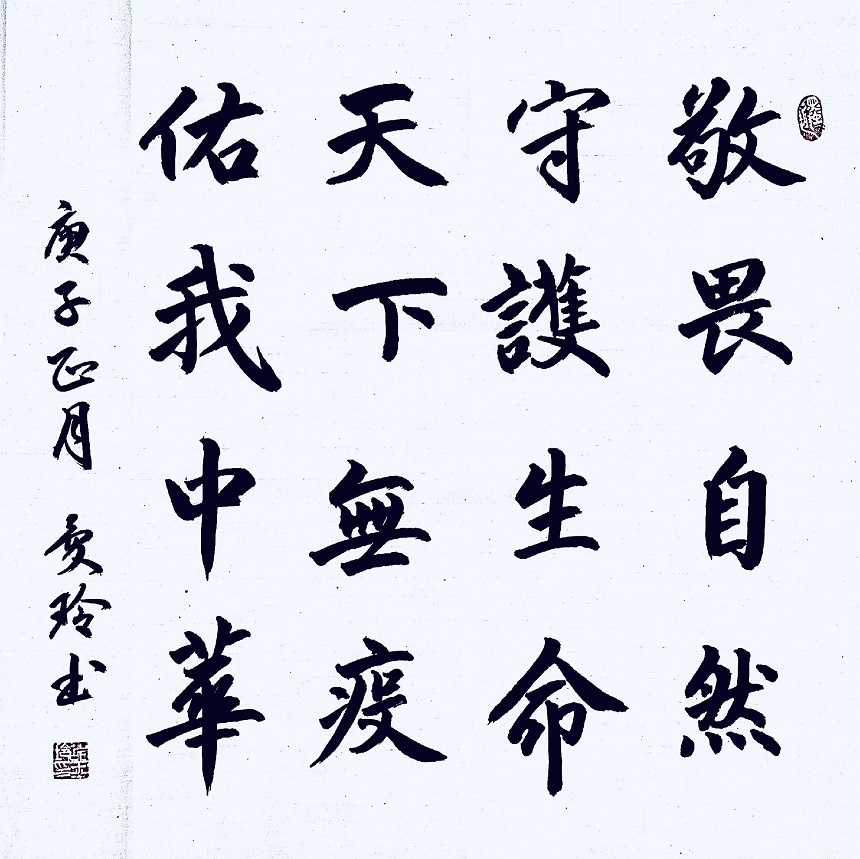 敬畏自然
守護生命
天下無疫
佑我中華
庚子正月 愛玲书